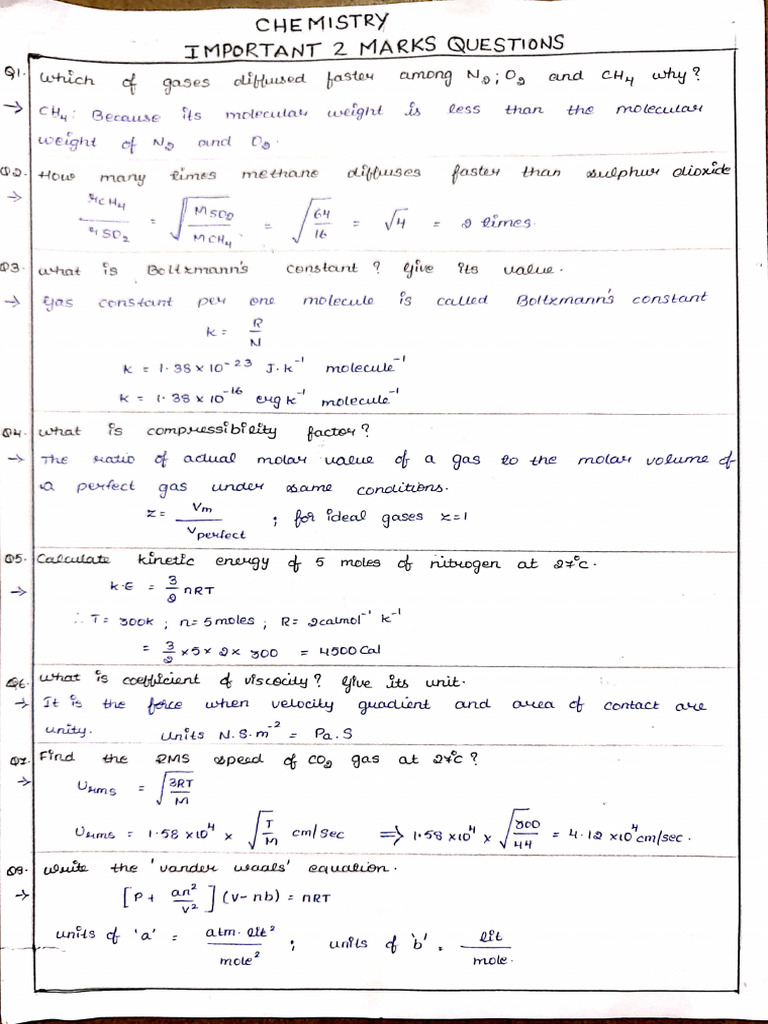 CHEMISTRY
IMPORTANT 2 MARKS QUESTIONS
Q1. Which of gases diffused faster among N2; O2 and CH4 why?
→ CH4: Because its molecular weight is less than the molecular
weight of N2 and O2.
Q2. How many times methane diffuses faster than sulphur dioxide
→ rCH4/rSO2 = √(MSO2/MCH4) = √(64/16) = √4 = 2 times.
Q3. what is Boltzmann's constant? Give its value.
→ Gas constant per one molecule is called Boltzmann's constant
k = R/N
k = 1.38×10⁻²³ J.k⁻¹ molecule⁻¹
k = 1.38×10⁻¹⁶ erg k⁻¹ molecule⁻¹
Q4. what is compressibility factor?
→ The ratio of actual molar value of a gas to the molar volume of
a perfect gas under same conditions.
z = Vm/Vperfect ; for ideal gases z=1
Q5. Calculate kinetic energy of 5 moles of nitrogen at 27°c.
→ k.E = 3/2 nRT
∴ T = 300k ; n = 5moles ; R = 2calmol⁻¹ k⁻¹
= 3/2 × 5 × 2 × 300 = 4500 Cal
Q6. what is coefficient of viscocity? Give its unit.
→ It is the force when velocity gradient and area of contact are
unity. units N.S.m⁻² = Pa.S
Q7. Find the RMS speed of CO2 gas at 27°c?
→ Urms = √(3RT/M)
Urms = 1.58×10⁴ × √(T/M) cm/sec ⟹ 1.58×10⁴ × √(300/44) = 4.12×10⁴ cm/sec.
Q8. Write the 'vander waals' equation.
→ [P + an²/V²] (V - nb) = nRT
units of 'a' = atm. lit²/mole² ; units of 'b' = lit/mole.